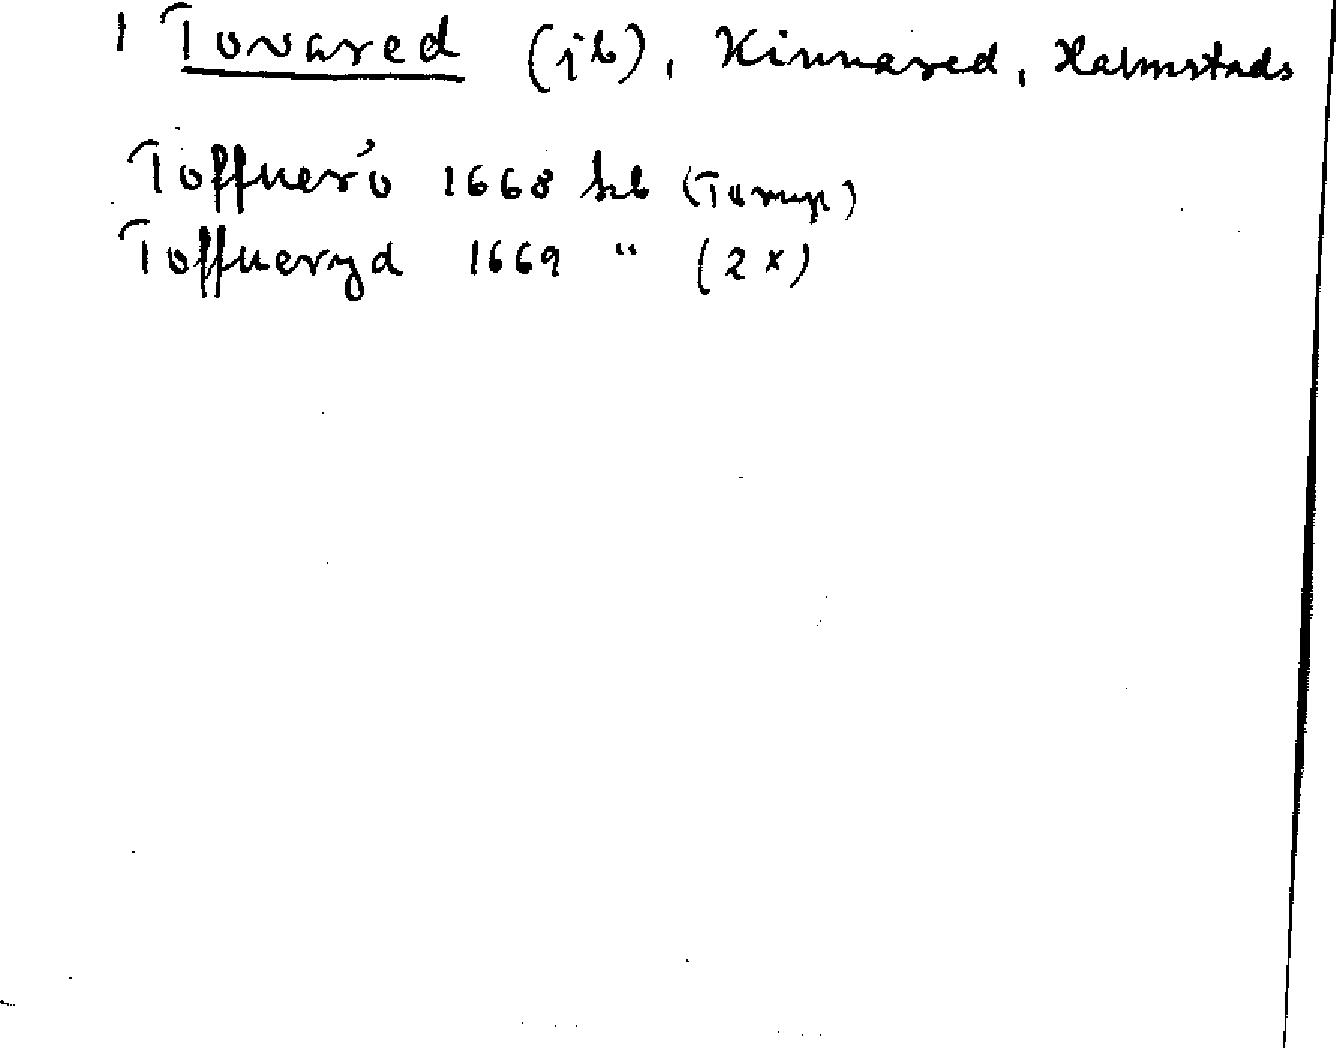 1 Tovared (jb), Kinnared, Halmstads
Toffuerö 1668 hb (Torup)
Toffueryd 1669 " (2 x)